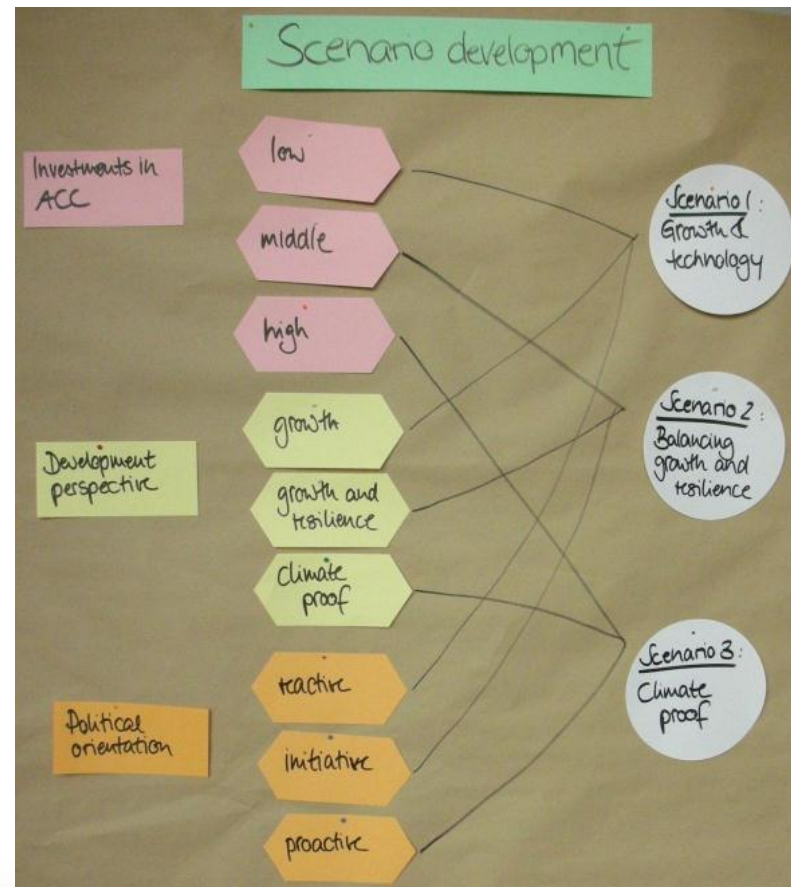 Scenario development
Investments in
ACC
low
middle
high
Development
perspective
growth
growth and
resilience
Climate
proof
Political
orientation
reactive
initiative
proactive
Scenario 1:
Growth &
technology
Scenario 2:
Balancing
growth and
resilience
Scenario 3:
Climate
proof